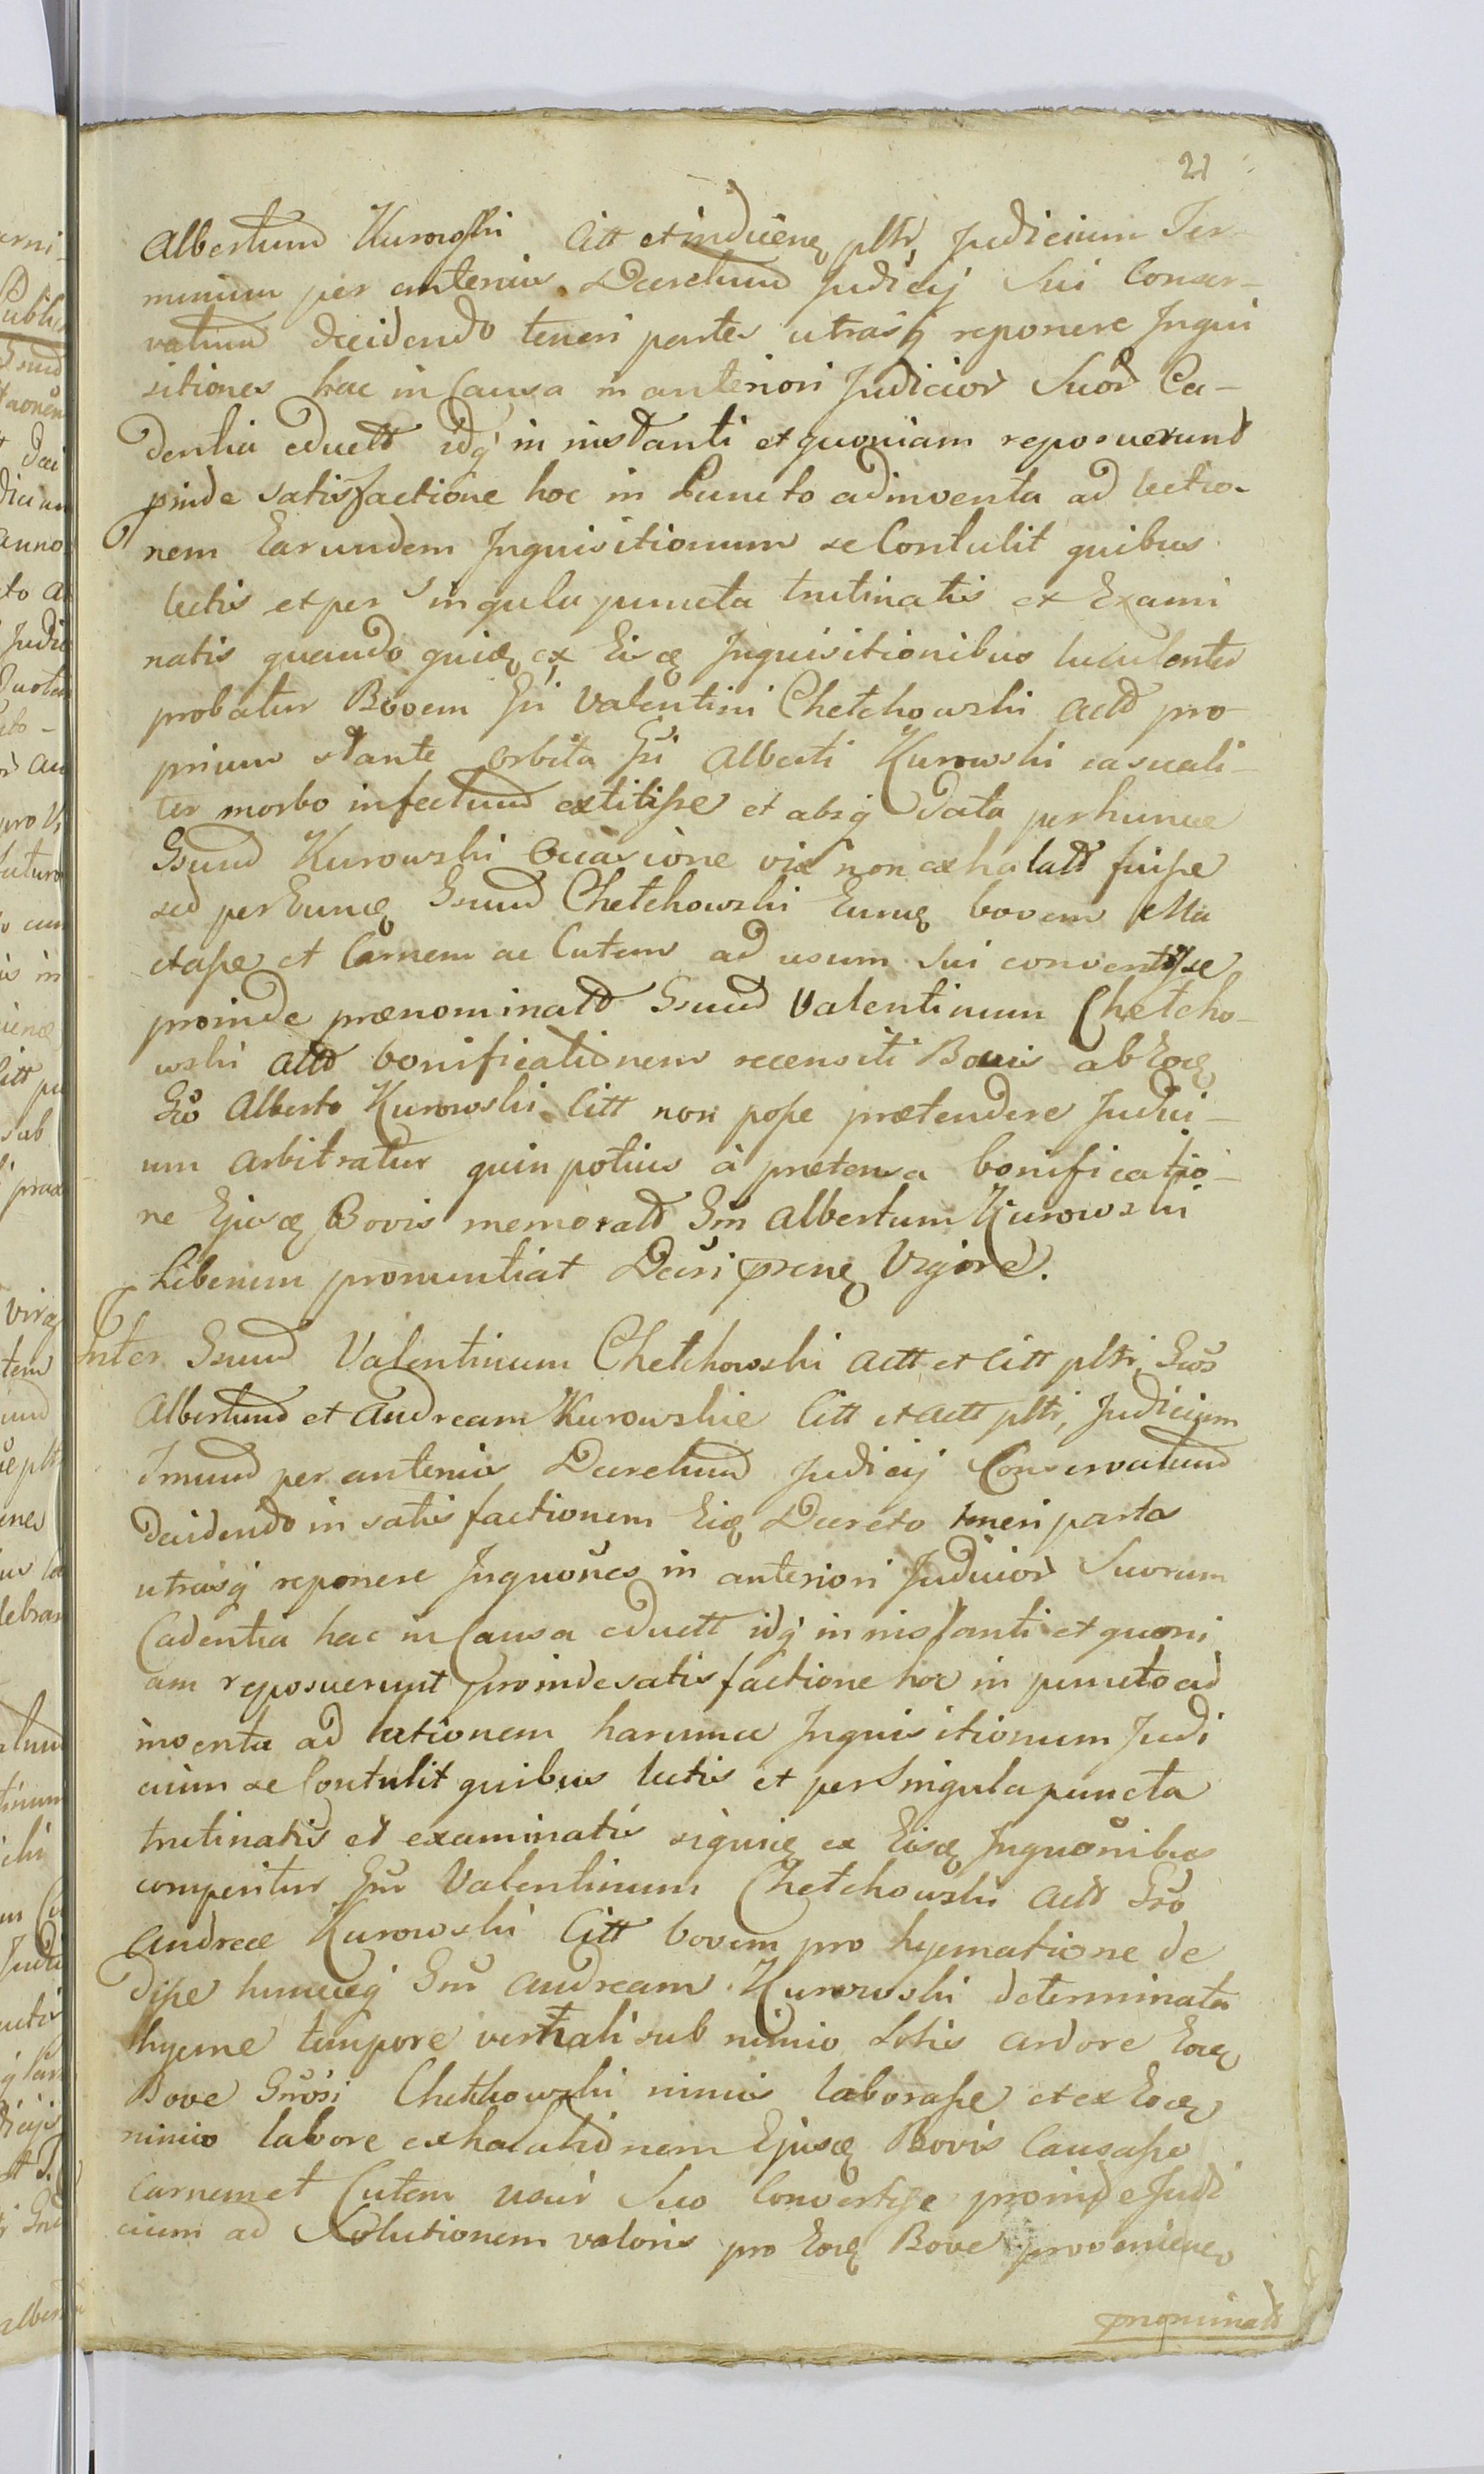 21
Albertum Kurowski Citt et inducenq pltr, Judicium Ter-
minum per anterius Decretum Judicij Sui Conser-
vatum decidendo teneri partes utrasq reponere Inqui
sitiones hac in Causa in anteriori Judicior Suor Ca-
dentia eductt idq in instanti et quoniam reposuerunt
pinde satisfactione hoc in Puncto adinventa ad lectio-
nem Earundem Inquisitionum se Contulit quibus
lectis et per singula puncta trutinatis et Exami
natis quando quidq ex Eisq Inquisitionibus luculenter
probatur Bovem Gsi Valentini Chetchowski Actt pro
prium stante orbita Gsi Alberti Kurowski casuali-
ter morbo infectum extitisse et absq data per hunce
Gsum Kurowski occasione vix non exhalatt fuisse
sed per Eunq Gsum Chetchowski Eunq bovem Ma
ctasse et Carnem ac Cutem ad usum sui convertisse
proinde prænominatt Gsum Valentinum Chetcho-
wski Actt bonificationem recensiti Bovis ab Eoq
Gso Alberto Kurowski Citt non posse prætendere Judici-
um arbitratur quin potius à prætensa bonificatio-
ne Ejusq Bovis memoratt Gsm Albertum Kurowski
Liberum pronuntiat Decsi prsnq Vigore.
Inter Gsum Valentinum Chetchowski Actt et Citt pltr, Gsos
Albertum et Andream Kurowskie Citt et Actt pltr, Judicium
Tmum per anterius Decretum Judicij Conservatum
decidendo in satisfactionem Eiq Decreto teneri partes
utrasq reponere Inquones in anteriori Judicior Suorum
Cadentia hac in Causa eductt idq in instanti et quoni
am reposuerunt proinde satisfactione hoc in puncto ad
inventa ad lectionem harumce Inquisitionum Judi
cium se Contulit quibus lectis et per Singula puncta
trutinatis et examinatis siquidq ex Eisq Inquonibus
comperitur Gsm Valentinum Chetchowski Actt Gso
Andreæ Kurowski Citt bovem pro hyematione de
disse hunceq Gsm Andream Kurowski determinata
hyeme tempore vernali sub nimio Solis ardore Eoq
Bove Gsosi Chetchowski nimis laborasse et ex Eoq
nimio labore exhalationem Ejusq Bovis Causasse
Carnem et Cutem usui Suo Convertisse proinde Judi
cium ad Solutionem valoris pro Eoq Bove provenienq
prnominatt